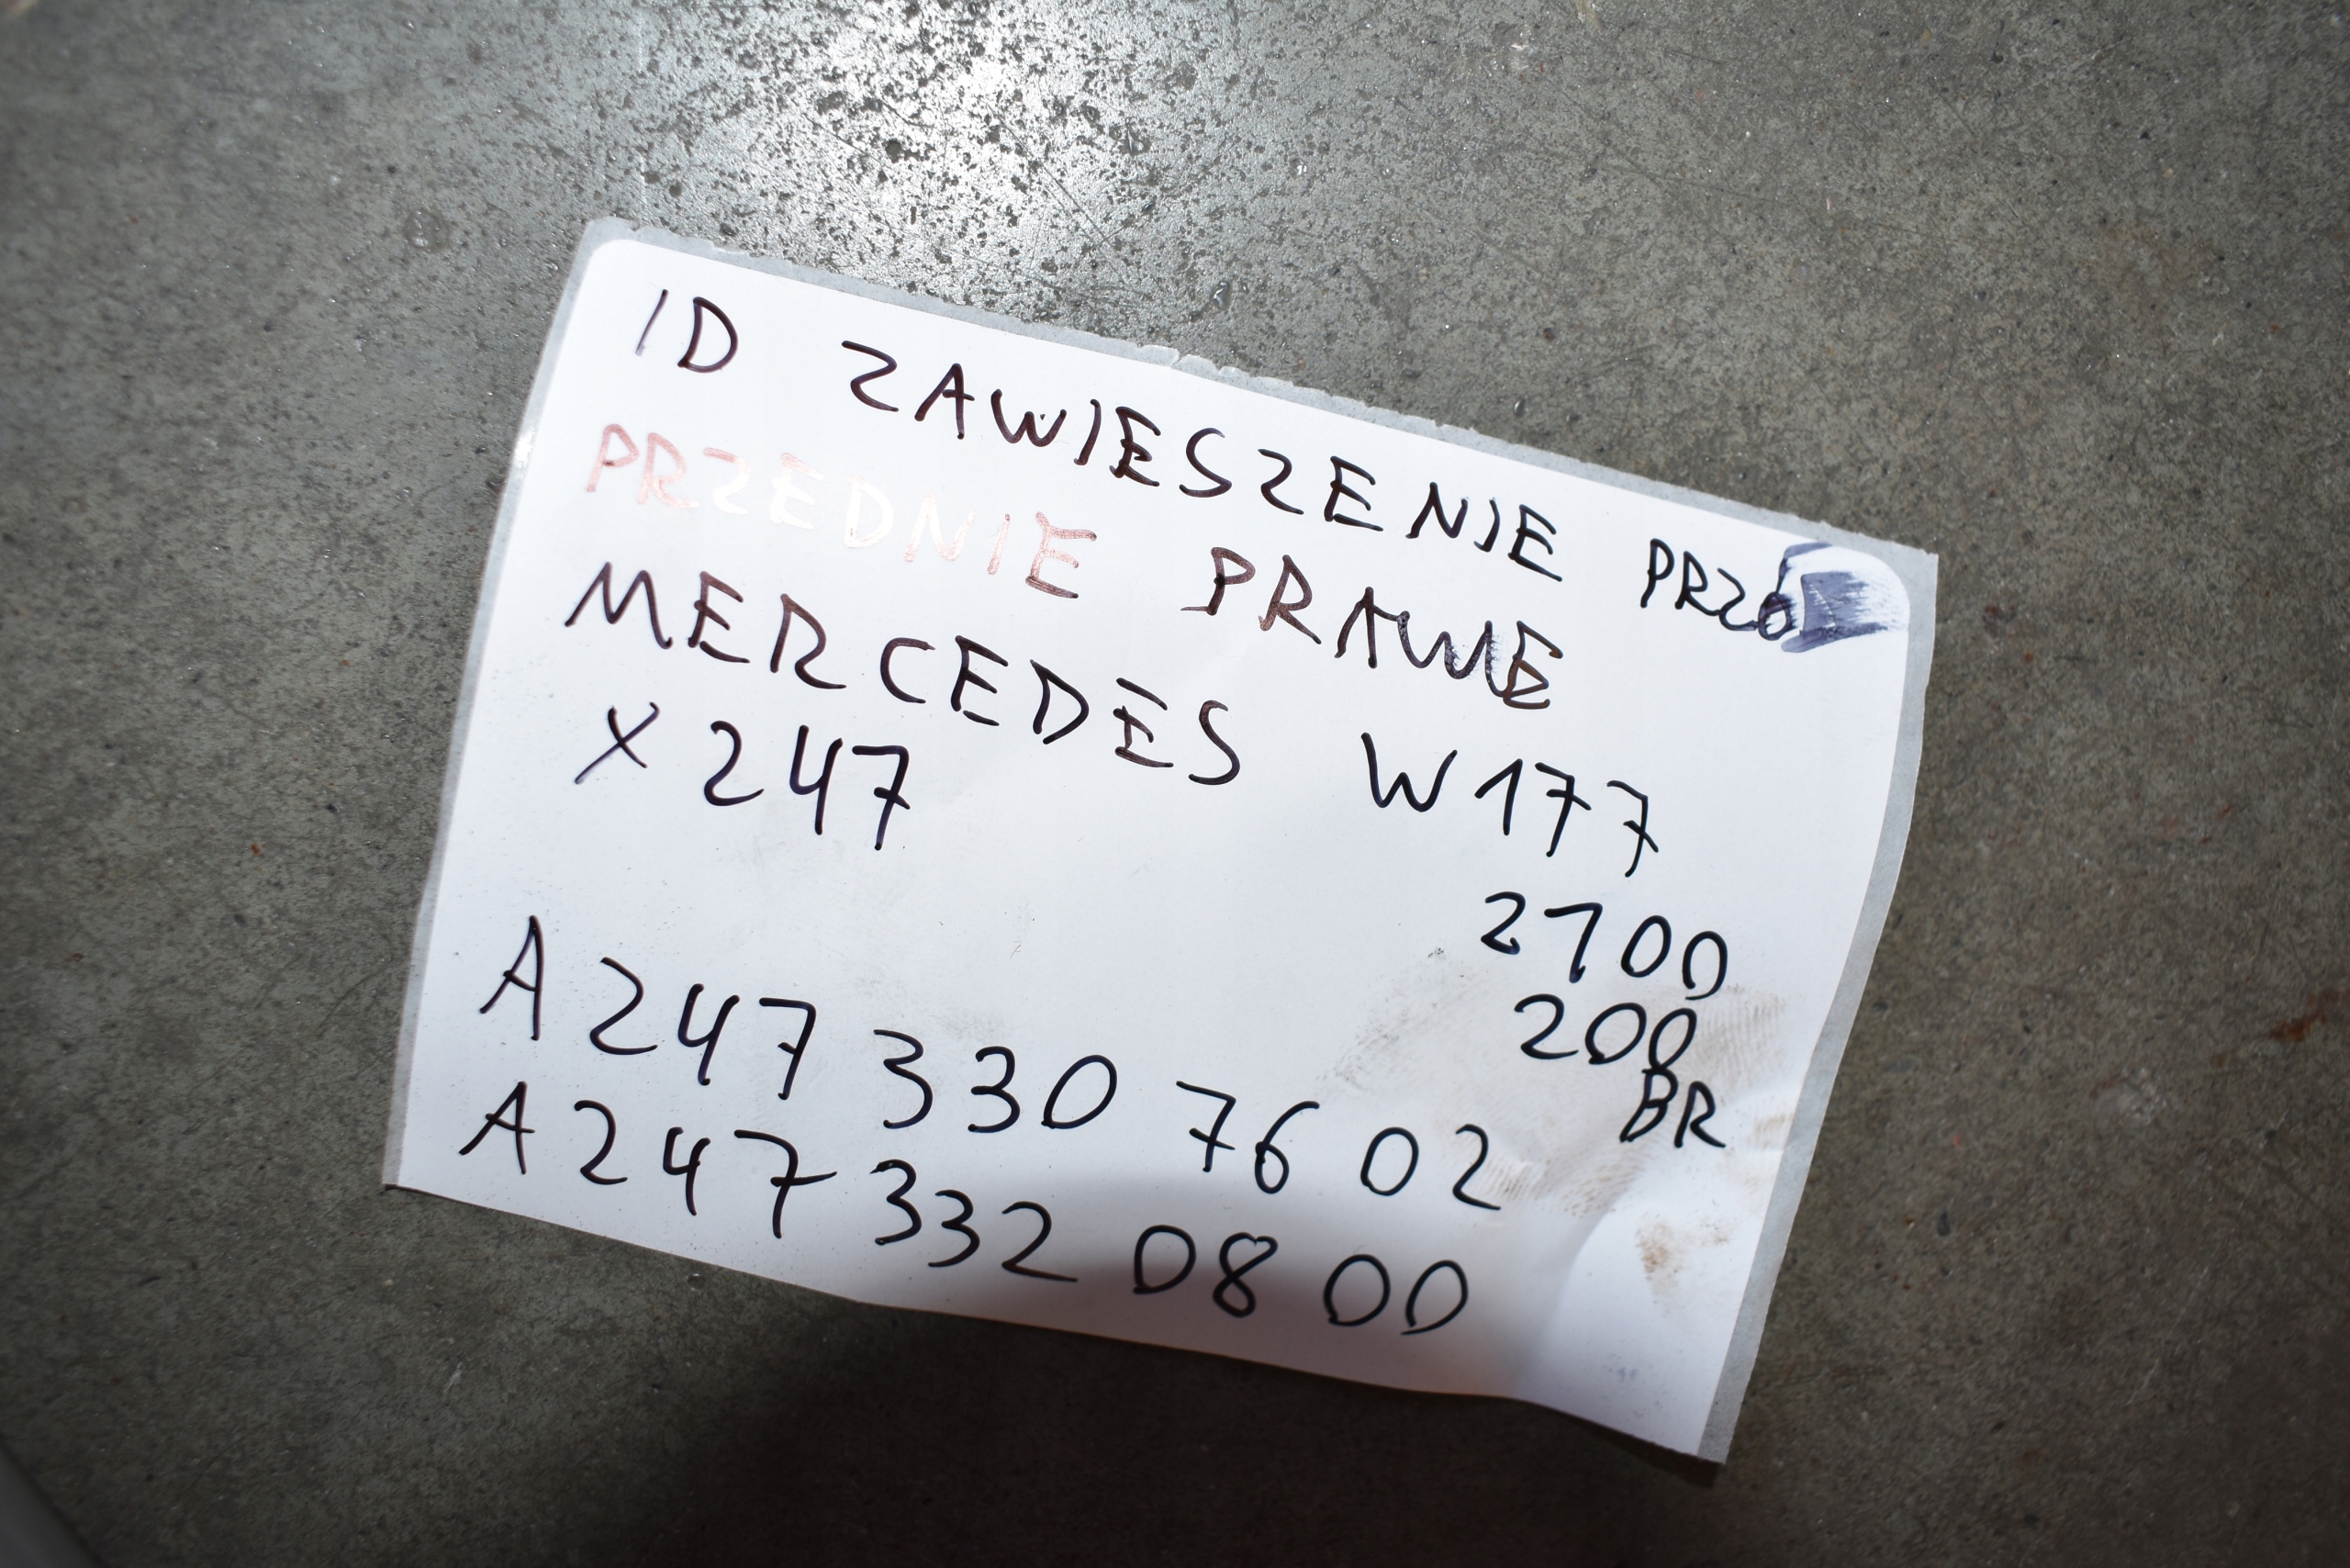 ID ZAWIESZENIE
PRZEDNIE PRAWE
MERCEDES W177
X247
2700
200
BR
A 247 330 76 02
A 247 332 08 00